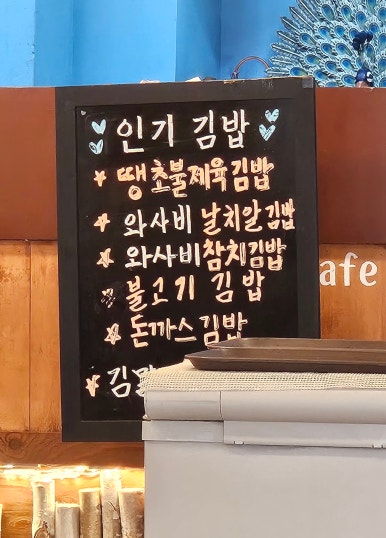 인기 김밥
땡초불제육김밥
와사비 날치알김밥
와사비참치김밥
불고기 김밥
돈까스김밥
afe